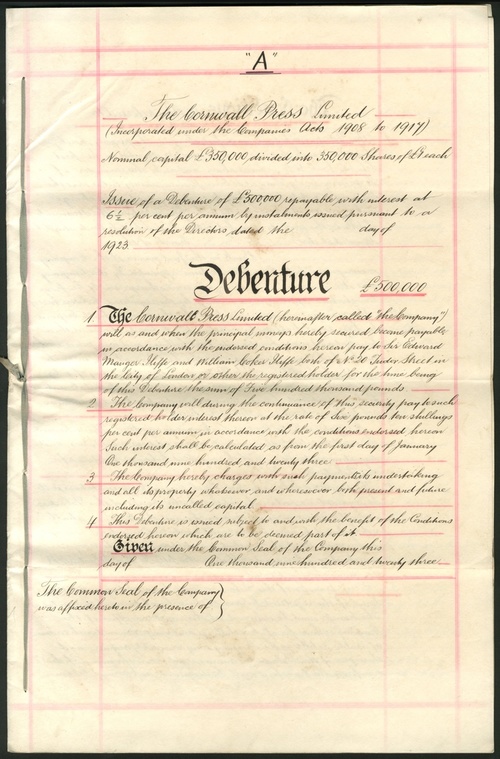 "A"
The Cornwall Press Limited
(Incorporated under the Companies Acts 1908 to 1917)
Nominal capital £350,000 divided into 350,000 Shares of £1 each
Issue of a Debenture of £500,000 repayable with interest at
6½ per cent per annum by instalments issued pursuant to a
resolution of the Directors dated the day of
1923
Debenture £500,000
1. The Cornwall Press Limited (hereinafter called "the Company")
will as and when the principal moneys hereby secured become payable
in accordance with the endorsed conditions hereon pay to Sir Edward
Mauger Iliffe and William Coker Iliffe both of No 20 Tudor Street in
the City of London or other the registered holder for the time being
of this Debenture the sum of Five hundred thousand pounds
2 The Company will during the continuance of this security pay to such
registered holder interest thereon at the rate of Five pounds ten shillings
per cent per annum in accordance with the conditions endorsed hereon
Such interest shall be calculated as from the first day of January
One thousand nine hundred and twenty three
3 The Company hereby charges with such payments its undertaking
and all its property whatsoever and wheresoever both present and future
including its uncalled capital
4 This Debenture is issued subject to and with the benefit of the Conditions
endorsed hereon which are to be deemed part of it
Given under the Common Seal of the Company this
day of One thousand nine hundred and twenty three
The Common Seal of the Company
was affixed hereto in the presence of }